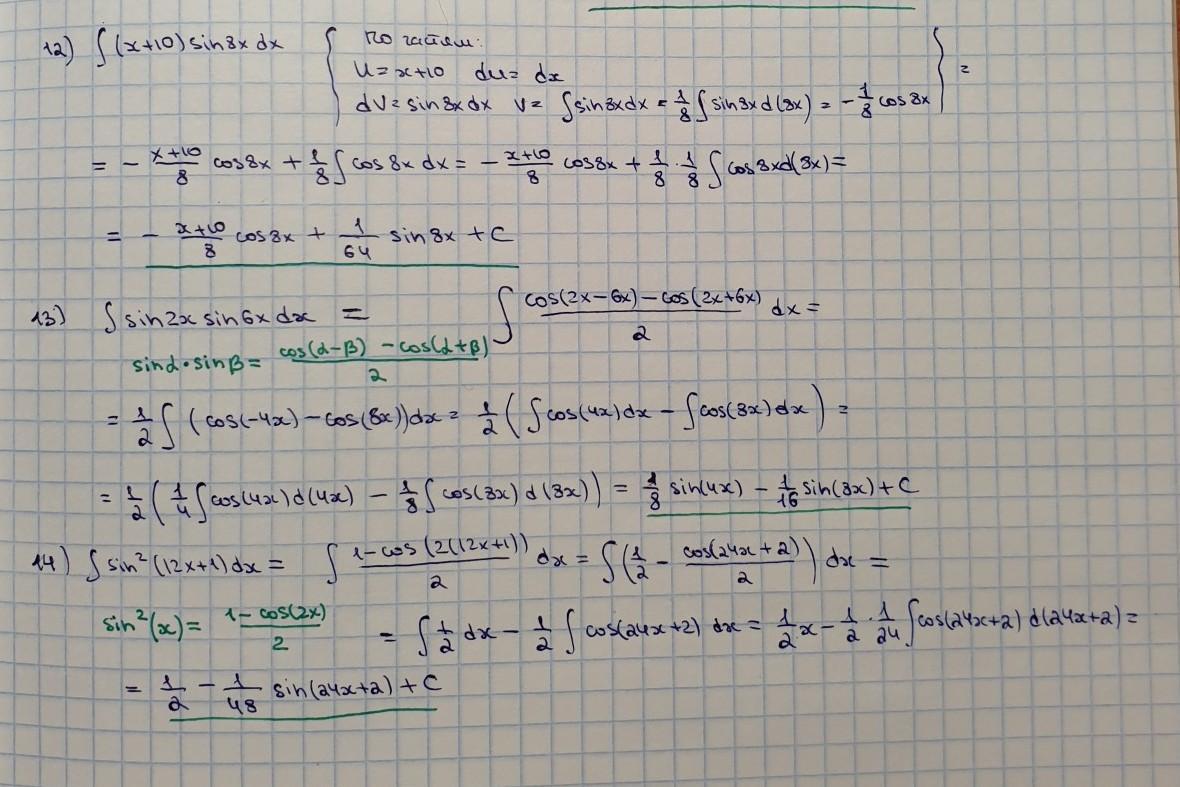 12) ∫(x+10) sin8x dx { по частям:
u = x+10 du = dx
dV = sin8x dx V = ∫sin8x dx = 1/8 ∫ sin8x d(8x) = - 1/8 cos8x } =
= - (x+10)/8 cos8x + 1/8 ∫ cos8x dx = - (x+10)/8 cos8x + 1/8 · 1/8 ∫ cos8x d(8x) =
= - (x+10)/8 cos8x + 1/64 sin8x + C
13) ∫ sin2x sin6x dx = ∫ (cos(2x-6x) - cos(2x+6x))/2 dx =
sinα·sinβ = (cos(α-β) - cos(α+β))/2
= 1/2 ∫ (cos(-4x) - cos(8x))dx = 1/2 (∫cos(4x)dx - ∫cos(8x)dx) =
= 1/2 (1/4 ∫cos(4x)d(4x) - 1/8 ∫cos(8x)d(8x)) = 1/8 sin(4x) - 1/16 sin(8x) + C
14) ∫ sin²(12x+1)dx = ∫ (1-cos(2(12x+1)))/2 dx = ∫(1/2 - cos(24x+2)/2) dx =
sin²(x) = (1-cos(2x))/2 = ∫ 1/2 dx - 1/2 ∫ cos(24x+2) dx = 1/2 x - 1/2 · 1/24 ∫cos(24x+2) d(24x+2) =
= 1/2 - 1/48 sin(24x+2) + C